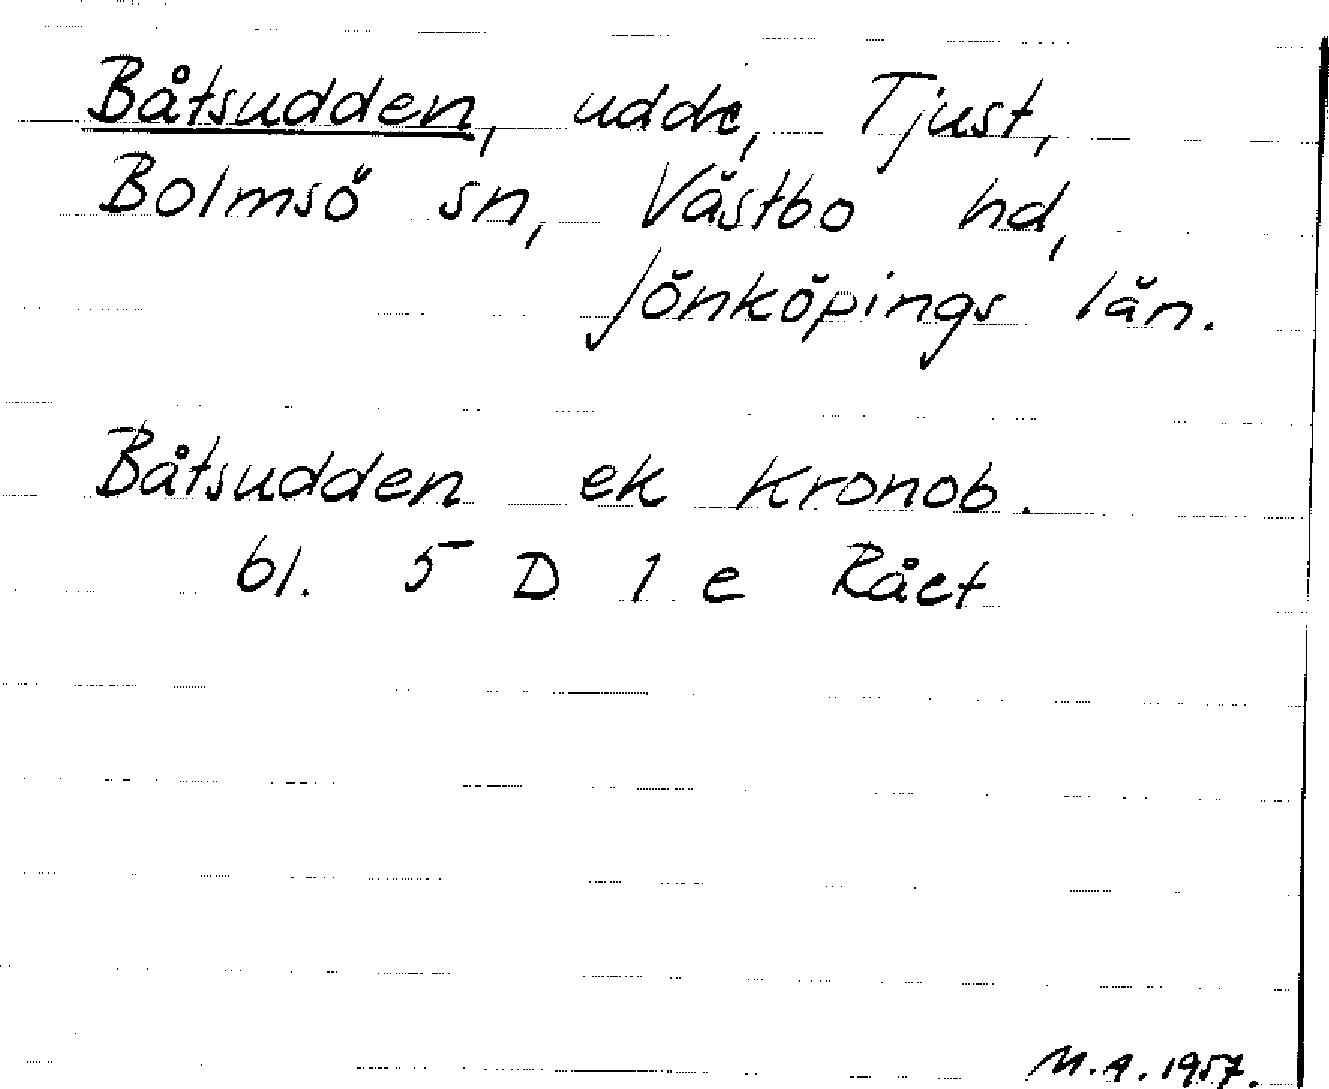 Båtsudden, udde, Tjust,
Bolmsö sn, Västbo hd,
Jönköpings län.
Båtsudden ek Kronob.
bl. 5 D 1 e Rået
M.A. 1957.